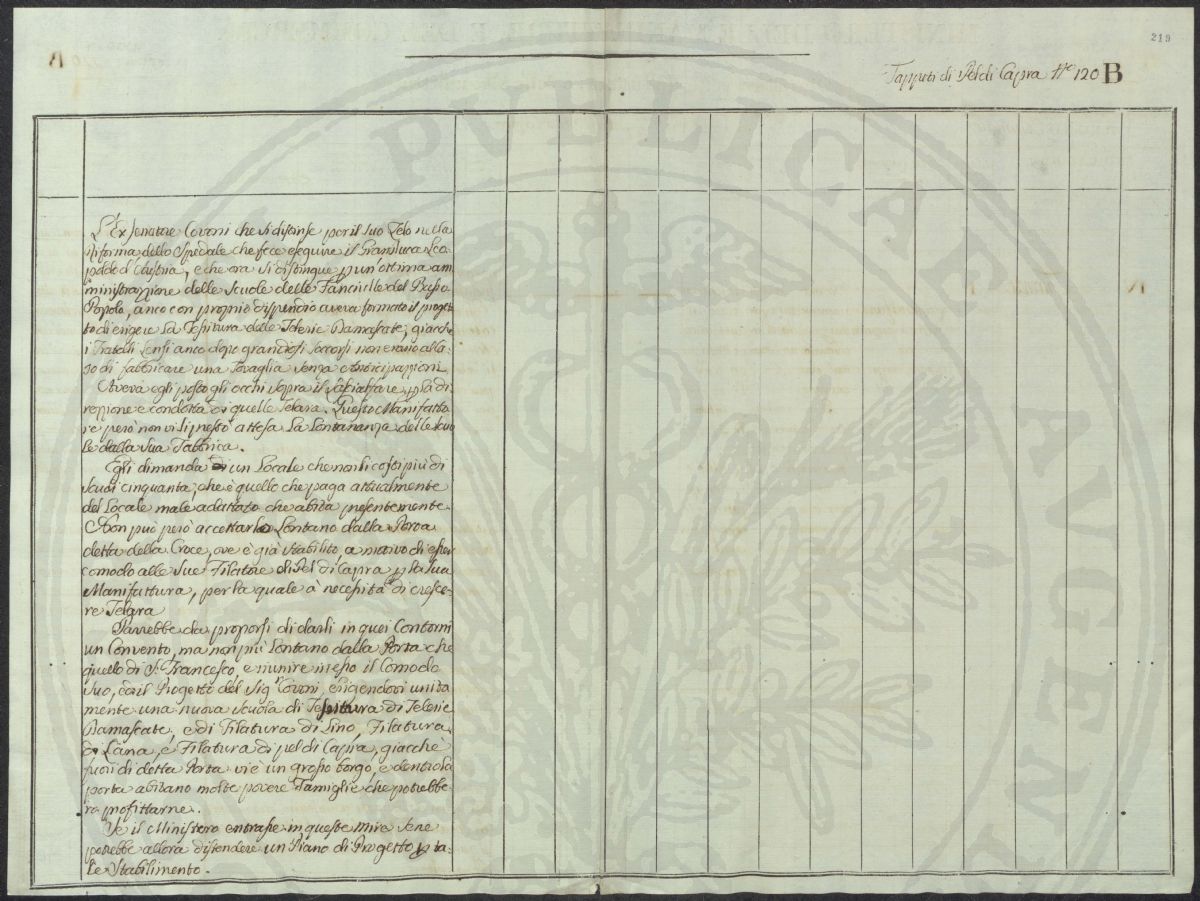 219
Tappeti di Pel di Capra N.º 120 B
L'Ex Senatore Covoni che si distinse per il suo Zelo nella
Riforma dello Spedale che fece eseguire il Granduca Leo-
poldo d'Austria, e che ora si distingue p un'ottima am
ministrazzione delle Scuole delle Fanciulle del Basso
Popolo, anco con proprio dispendio aveva formato il proget
to di erigere la Tessitura delle Telerie Damascate, giacchè
i Fratelli Lensi anco dopo grandiosi soccorsi non erano al ca-
so di fabbricare una Tovaglia senza Anticipazzioni
Aveva egli posto gli occhi sopra il p la di
rezzione e condotta di quelle Telara. Questo Manifatto
re però non vi si prestò attesa la lontananza delle scuo
le dalla sua Fabbrica.
Egli dimanda di un Locale che non li costi più di
Scudi cinquanta, che è quello che paga attualmente
del Locale male adattato che abita presentemente.
Non può però accettarlo lontano dalla Porta
detta della Croce, ove è già stabilito, a motivo di esser
comodo alle sue Filatore di Pel di Capra p la sua
Manifattura, per la quale à necessità di cresce-
re Telara
Parrebbe da proporsi di darli in quei Contorni
un Convento, ma non più lontano dalla Porta che
quello di S. Francesco, e munire in esso il Comodo
suo, ed il Progetto del Sigr Covoni, erigendovi unita
mente una nuova Scuola di Tessitura di Telerie
Damascate, e di Filatura di Lino, Filatura
di Lana, e Filatura di pel di Capra, giacchè
fuori di detta Porta vi è un grosso borgo, e dentro la
porta abitano molte povere Famiglie che potrebbe
ro profittarne.
Se il Ministero entrasse in queste mire se ne
potrebbe allora distendere un Piano di Progetto p ta-
le Stabilimento.
PUBLICAE